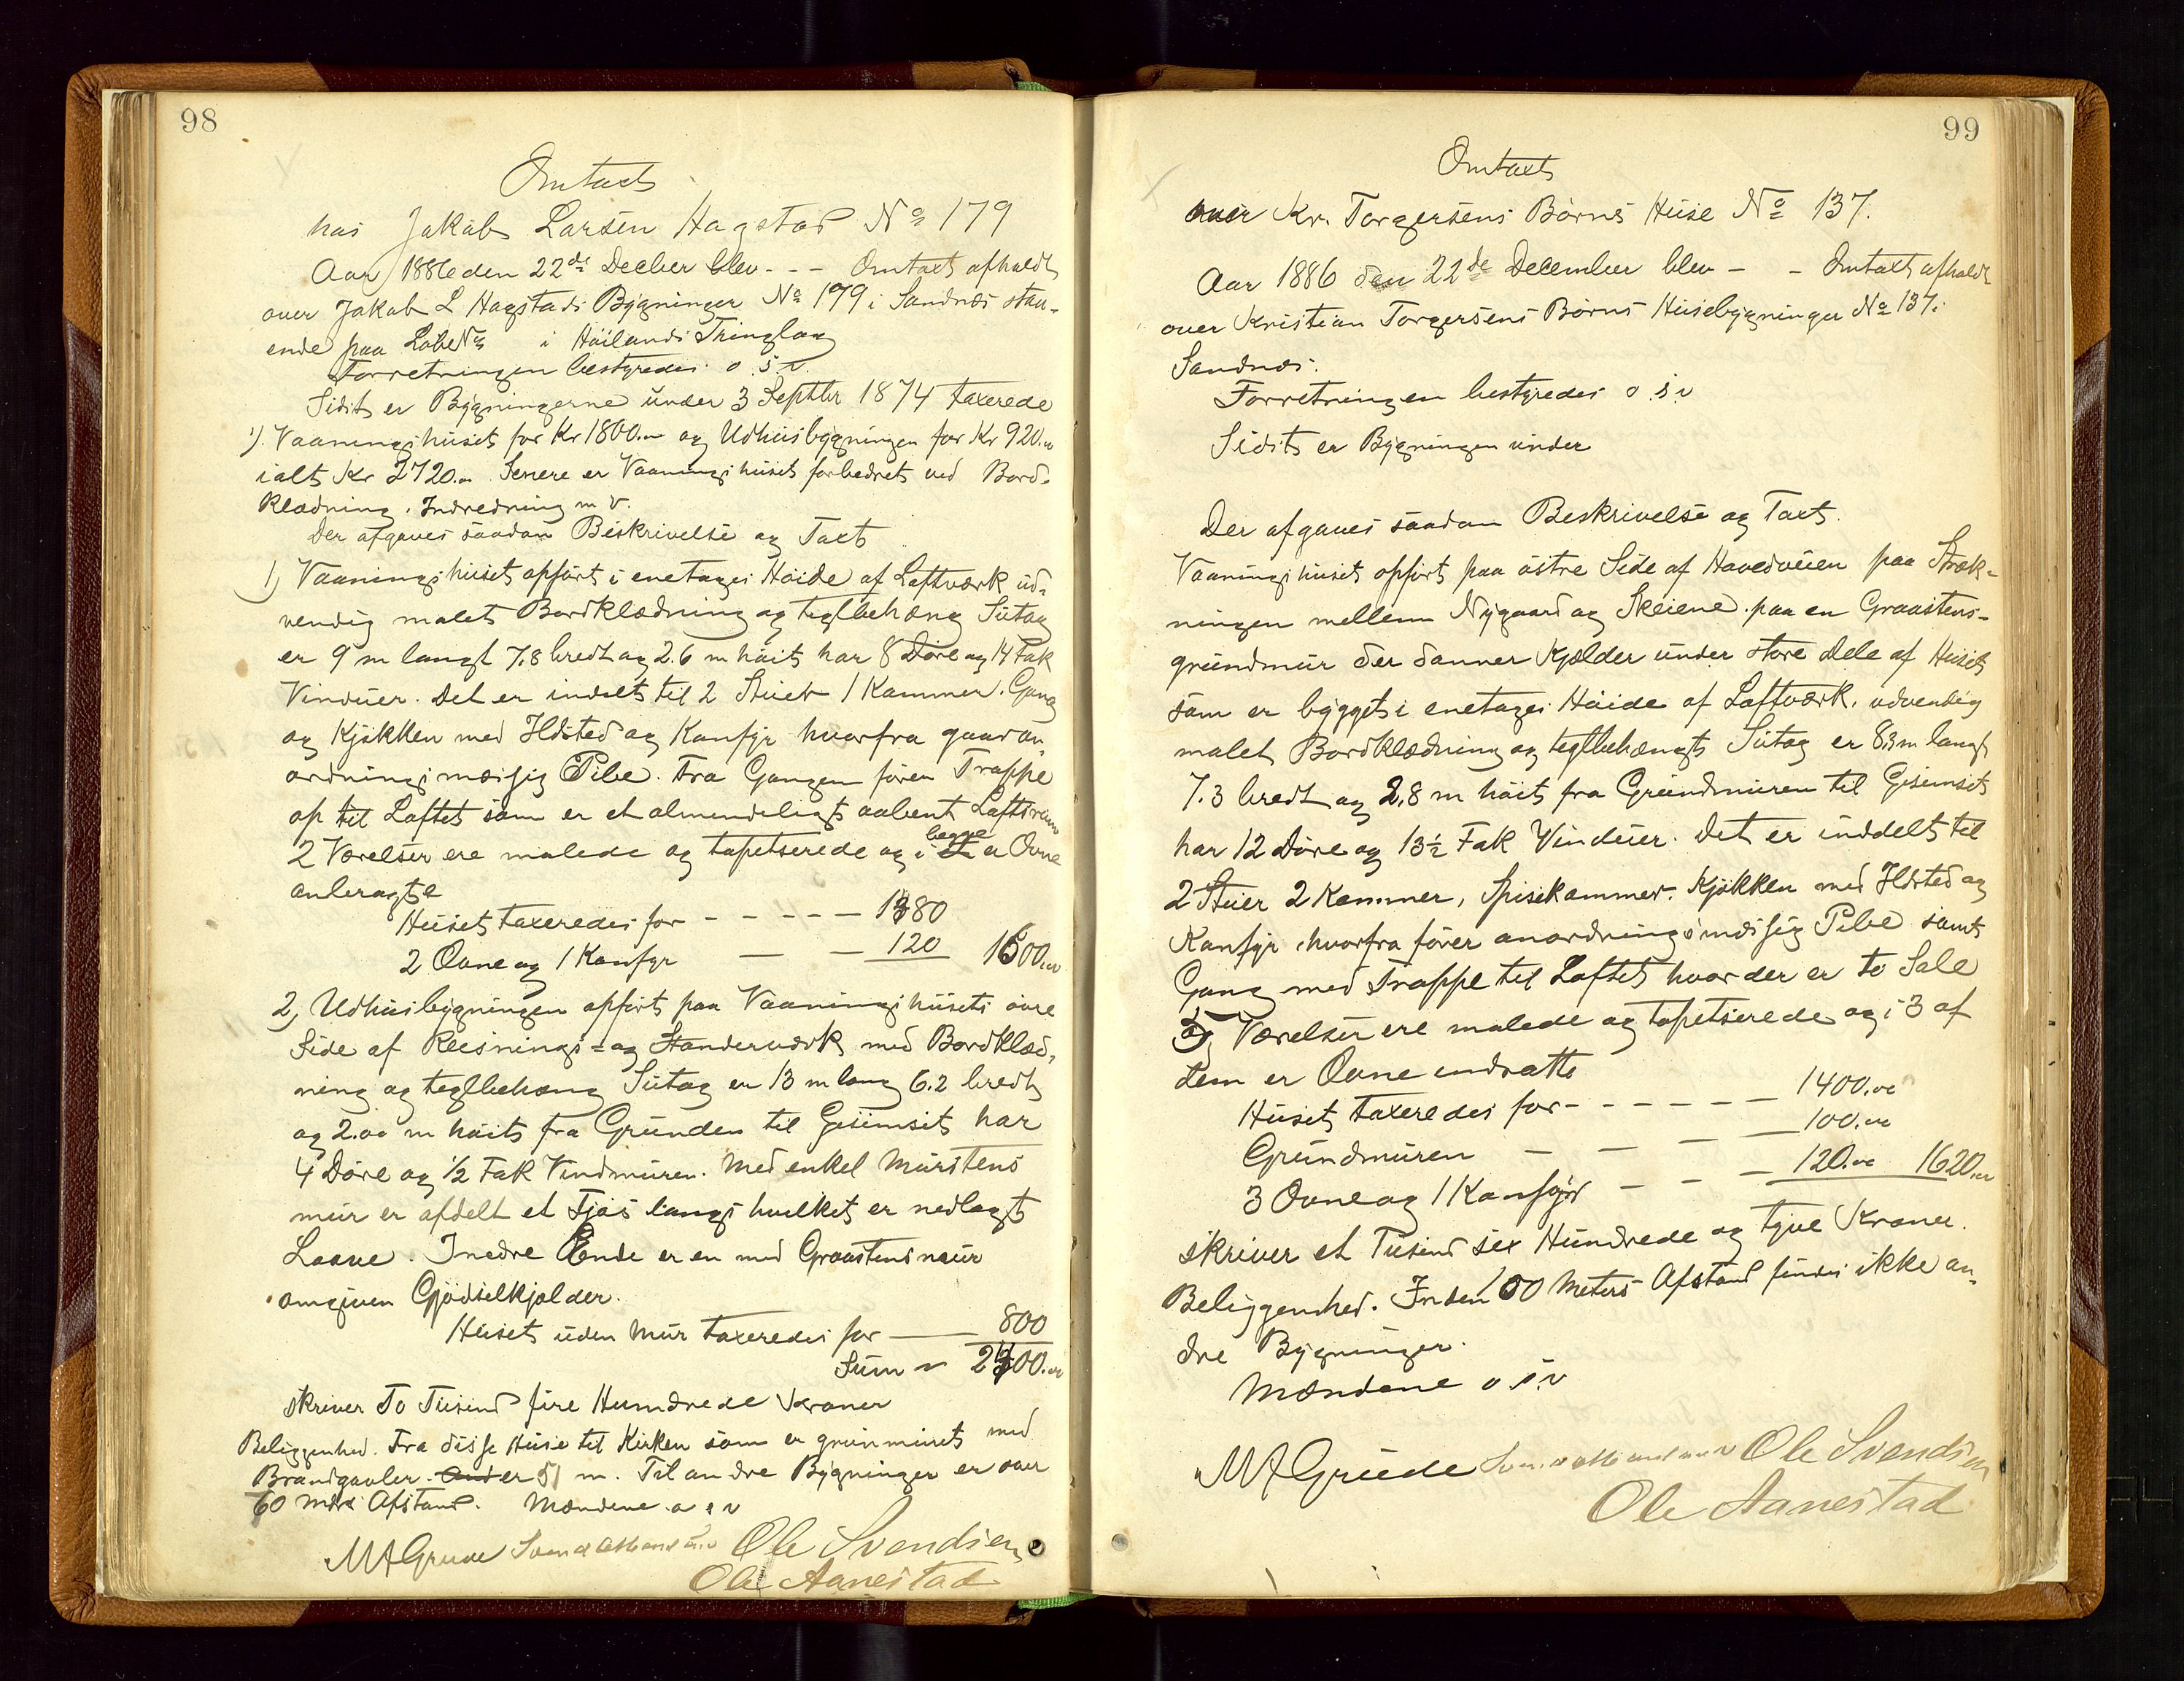 98
Omtaxt
hos Jakob Larsen Hagstad No 179
Aar 1886 den 22de Decber blev - - - Omtaxt afholdt
over Jakob L Hagstads Bygninger No 179 i Sandnæs staa-
ende paa LøbeNo i Høilands Thinglag
Forretningen bestyredes o.s.v.
Sidst er Bygningerne under 3 Septbr 1874 taxerede
1). Vaaningshuset for Kr 1800.00 og Udhusbygningen for Kr 920.00
ialt Kr 2720.00 Senere er Vaaningshuset forbedret ved Bord-
klædning, Indredning m v.
Der afgaves saadan Beskrivelse og Taxt
1) Vaaningshuset opført i enetages Høide af Loftværk ud-
vendig malet Bordklædning og teglbehæng Sutag
er 9 m langt 7,8 bredt og 2.6 m høit har 8 Døre og 14 Fak
Vinduer. Det er inddelt til 2 Stuer 1 Kammer. Gang
og Kjøkken med Ildsted og Komfyr hvorfra gaar an-
ordningsmæssig Pibe. Fra Gangen fører Trappe
op til Loftet som er et almindeligt aabent Loftsrum
2 Værelser ere malede og tapetserede og i begge er Ovne
anbragte
Huset taxeredes for - - - - - 1380
2 Ovne og 1 Komfyr — — 120 1500.00
2, Udhusbygningen opført paa Vaaningshusets øvre
Side af Reisnings- og Standerværk med Bordklæd-
ning og teglbehæng Sutag er 13 m lang 6.2 bredt
og 2.00 m høit fra Grunden til Gesimset har
4 Døre og 1/2 Fak Vindmuren. Med enkel Murstens
mur er afdelt et Fjøs langs hvilket er nedlagt
Laave. I nedre Ende er en med Graastensmur
omgiven Gjødselkjælder.
Huset uden Mur taxeredes for — 800
Sum 2400.00
skriver To Tusind fire Hundrede Kroner
Beliggenhed. Fra disse Huse til Kirken som er grunmuret med
Brandgavler er 51 m. Til andre Bygninger er over
60 mtrs Afstand. Mændene o s v
MAGrude Ole Svendsen
Ole Aanestad
99
Omtaxt
over Kr. Torgersens Børns Huse No 137.
Aar 1886 den 22de December blev - - Omtaxt afholdt
over Kristian Torgersens Børns Husebygninger No 137 i
Sandnæs.
Forretningen bestyredes o.s.v
Sidst er Bygningen under
Der afgaves saadan Beskrivelse og Taxt.
Vaaningshuset opført paa østre Side af Hovedveien paa Stræk-
ningen mellem Nygaard og Skeiene paa en Graastens-
grundmur der danner Kjælder under store Dele af Huset
som er bygget i enetages Høide af Loftværk, udvendig
malet Bordklædning og teglbehængt Sutag er 8.3 m langt
7.3 bredt og 2,8 m høit fra Grundmuren til Gesimset
har 12 Døre og 13 1/2 Fak Vinduer. Det er inddelt til
2 Stuer 2 Kammer, Spisekammer, Kjøkken med Ildsted og
Komfyr, hvorfra fører anordningsmæssig Pibe samt
Gang med Trappe til Loftet hvor der er to Sale
Værelser ere malede og tapetserede og i 3 af
dem er Ovne indsatte
Huset taxeredes for - - - - - - 1400.00
Grundmuren — — — — 100.00
3 Ovne og 1 Komfyr — — — 120.00 1620.00
skriver et Tusind sex Hundrede og tyve Kroner.
Beliggenhed. Inden 100 Meters Afstand findes ikke an-
dre Bygninger.
Mændene o.s.v
MAGrude Ole Svendsen
Ole Aanestad